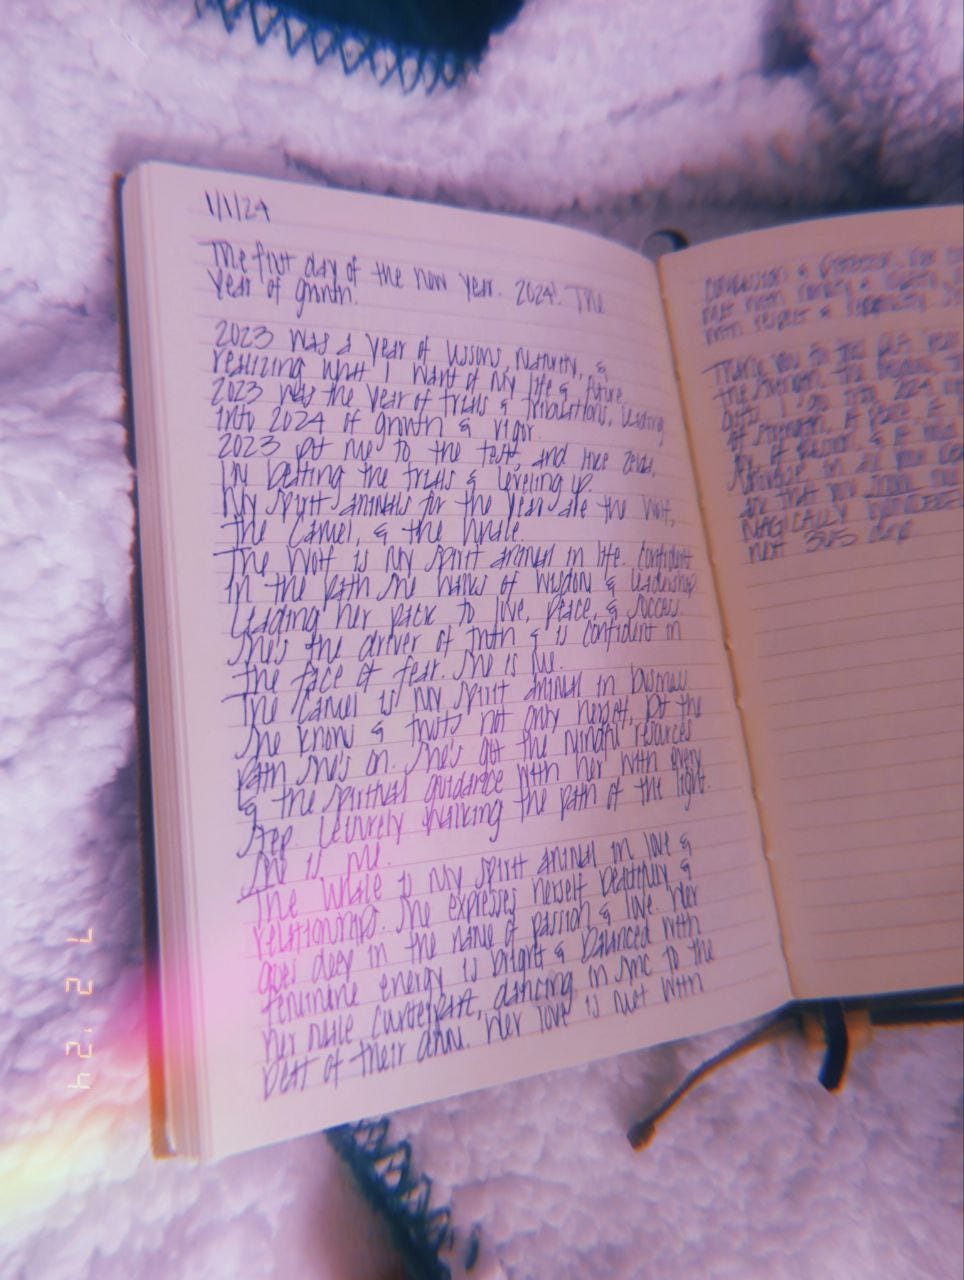 1/1/24
The first day of the new year. 2024! The
Year of growth.
2023 was a year of lessons, maturity, &
realizing what I want of my life & future.
2023 was the year of trials & tribulations, leading
into 2024 of growth & vigor.
2023 put me to the test, and like Zelda,
I'm beating the trials & leveling up.
My spirit animals for the year are the Wolf,
the Camel, & the Whale.
The Wolf is my spirit animal in life. Confident
in the path she walks of wisdom & leadership
Leading her pack to love, peace, & success.
She's the driver of truth & is confident in
the face of fear. She is me.
The Camel is my spirit animal in business.
She knows & trusts not only herself, but the
path she's on. She's got the mindful resources
& the spiritual guidance with her with every
step. Leisurely walking the path of the light.
She is me.
The Whale is my spirit animal in love &
relationships. She expresses herself beautifully &
goes deep in the name of passion & love. Her
feminine energy is bright & balanced with
her male counterpart, dancing in sync to the
beat of their drum. Her love is met with
compassion &
met with
with respect &
Thank you for the
the
I go into 2024
of
of
in all
are that you
MAGICALLY
not
7 2 '24